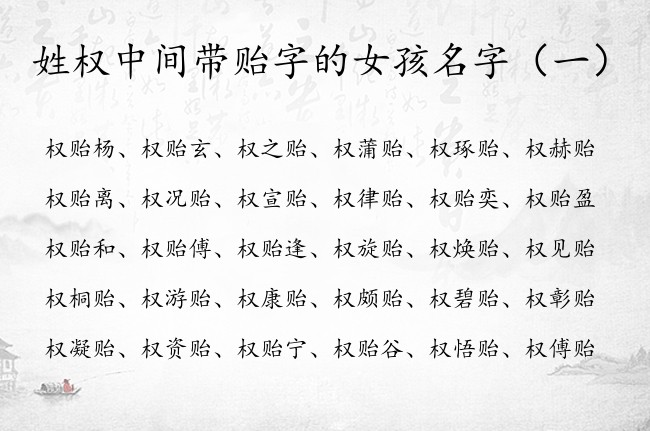 姓权中间带贻字的女孩名字（一）
权贻杨、权贻玄、权之贻、权蒲贻、权琢贻、权赫贻
权贻离、权况贻、权宣贻、权律贻、权贻奕、权贻盈
权贻和、权贻傅、权贻逢、权旋贻、权焕贻、权见贻
权桐贻、权游贻、权康贻、权颇贻、权碧贻、权彰贻
权凝贻、权资贻、权贻宁、权贻谷、权悟贻、权傅贻